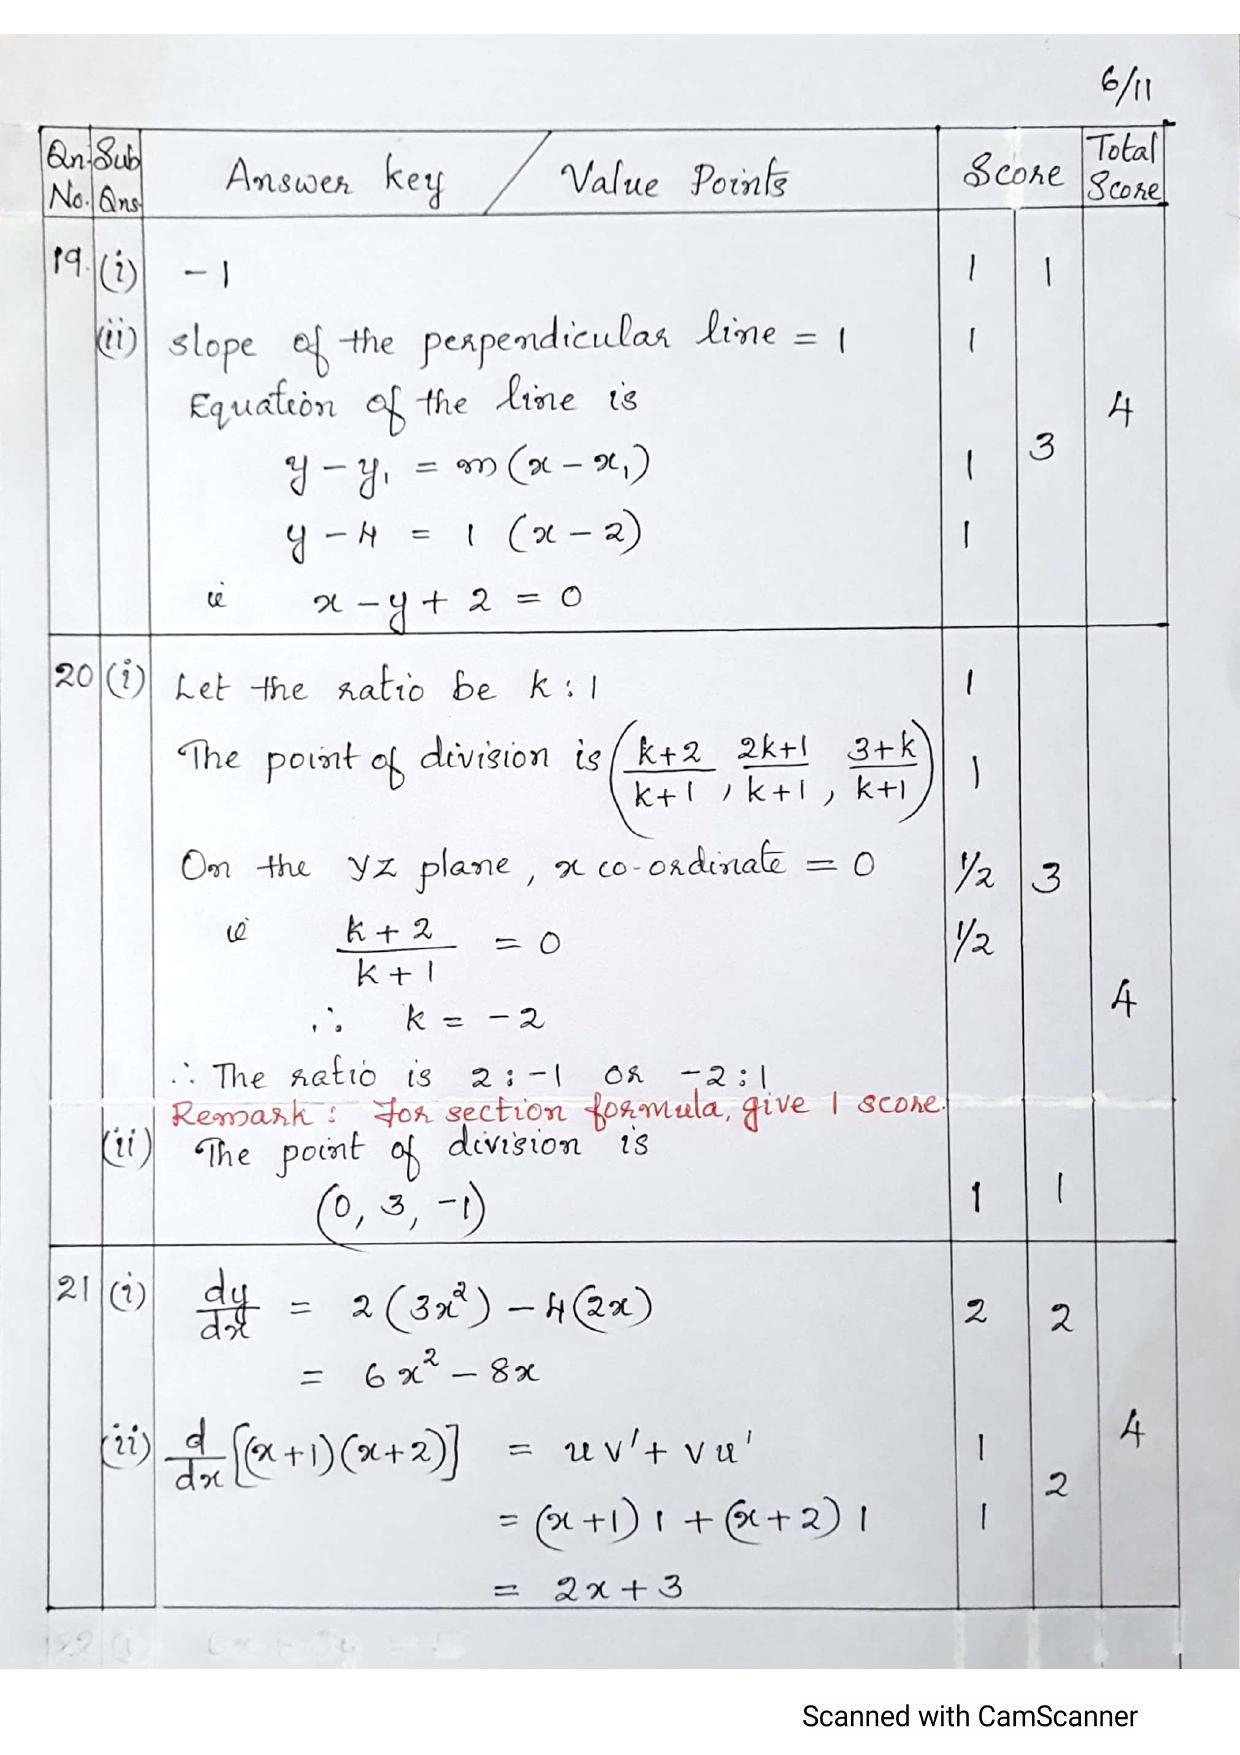 6/11
Qn. No. Sub Qns Answer key / Value Points Score Total Score
19. (i) -1 1 1
(ii) slope of the perpendicular line = 1 1
Equation of the line is 4
y - y₁ = m(x - x₁) 1 3
y - 4 = 1 (x - 2) 1
ie x - y + 2 = 0
20 (i) Let the ratio be k : 1 1
The point of division is ((k+2)/(k+1), (2k+1)/(k+1), (3+k)/(k+1)) 1
On the YZ plane, x co-ordinate = 0 1/2 3
ie (k+2)/(k+1) = 0 1/2
4
∴ k = -2
∴ The ratio is 2 : -1 or -2 : 1
Remark : For section formula, give 1 score.
(ii) The point of division is
(0, 3, -1) 1 1
21 (i) dy/dx = 2(3x²) - 4(2x) 2 2
= 6x² - 8x
(ii) d/dx [(x+1)(x+2)] = uv' + vu' 1 4
2
= (x+1) 1 + (x+2) 1 1
= 2x + 3
Scanned with CamScanner